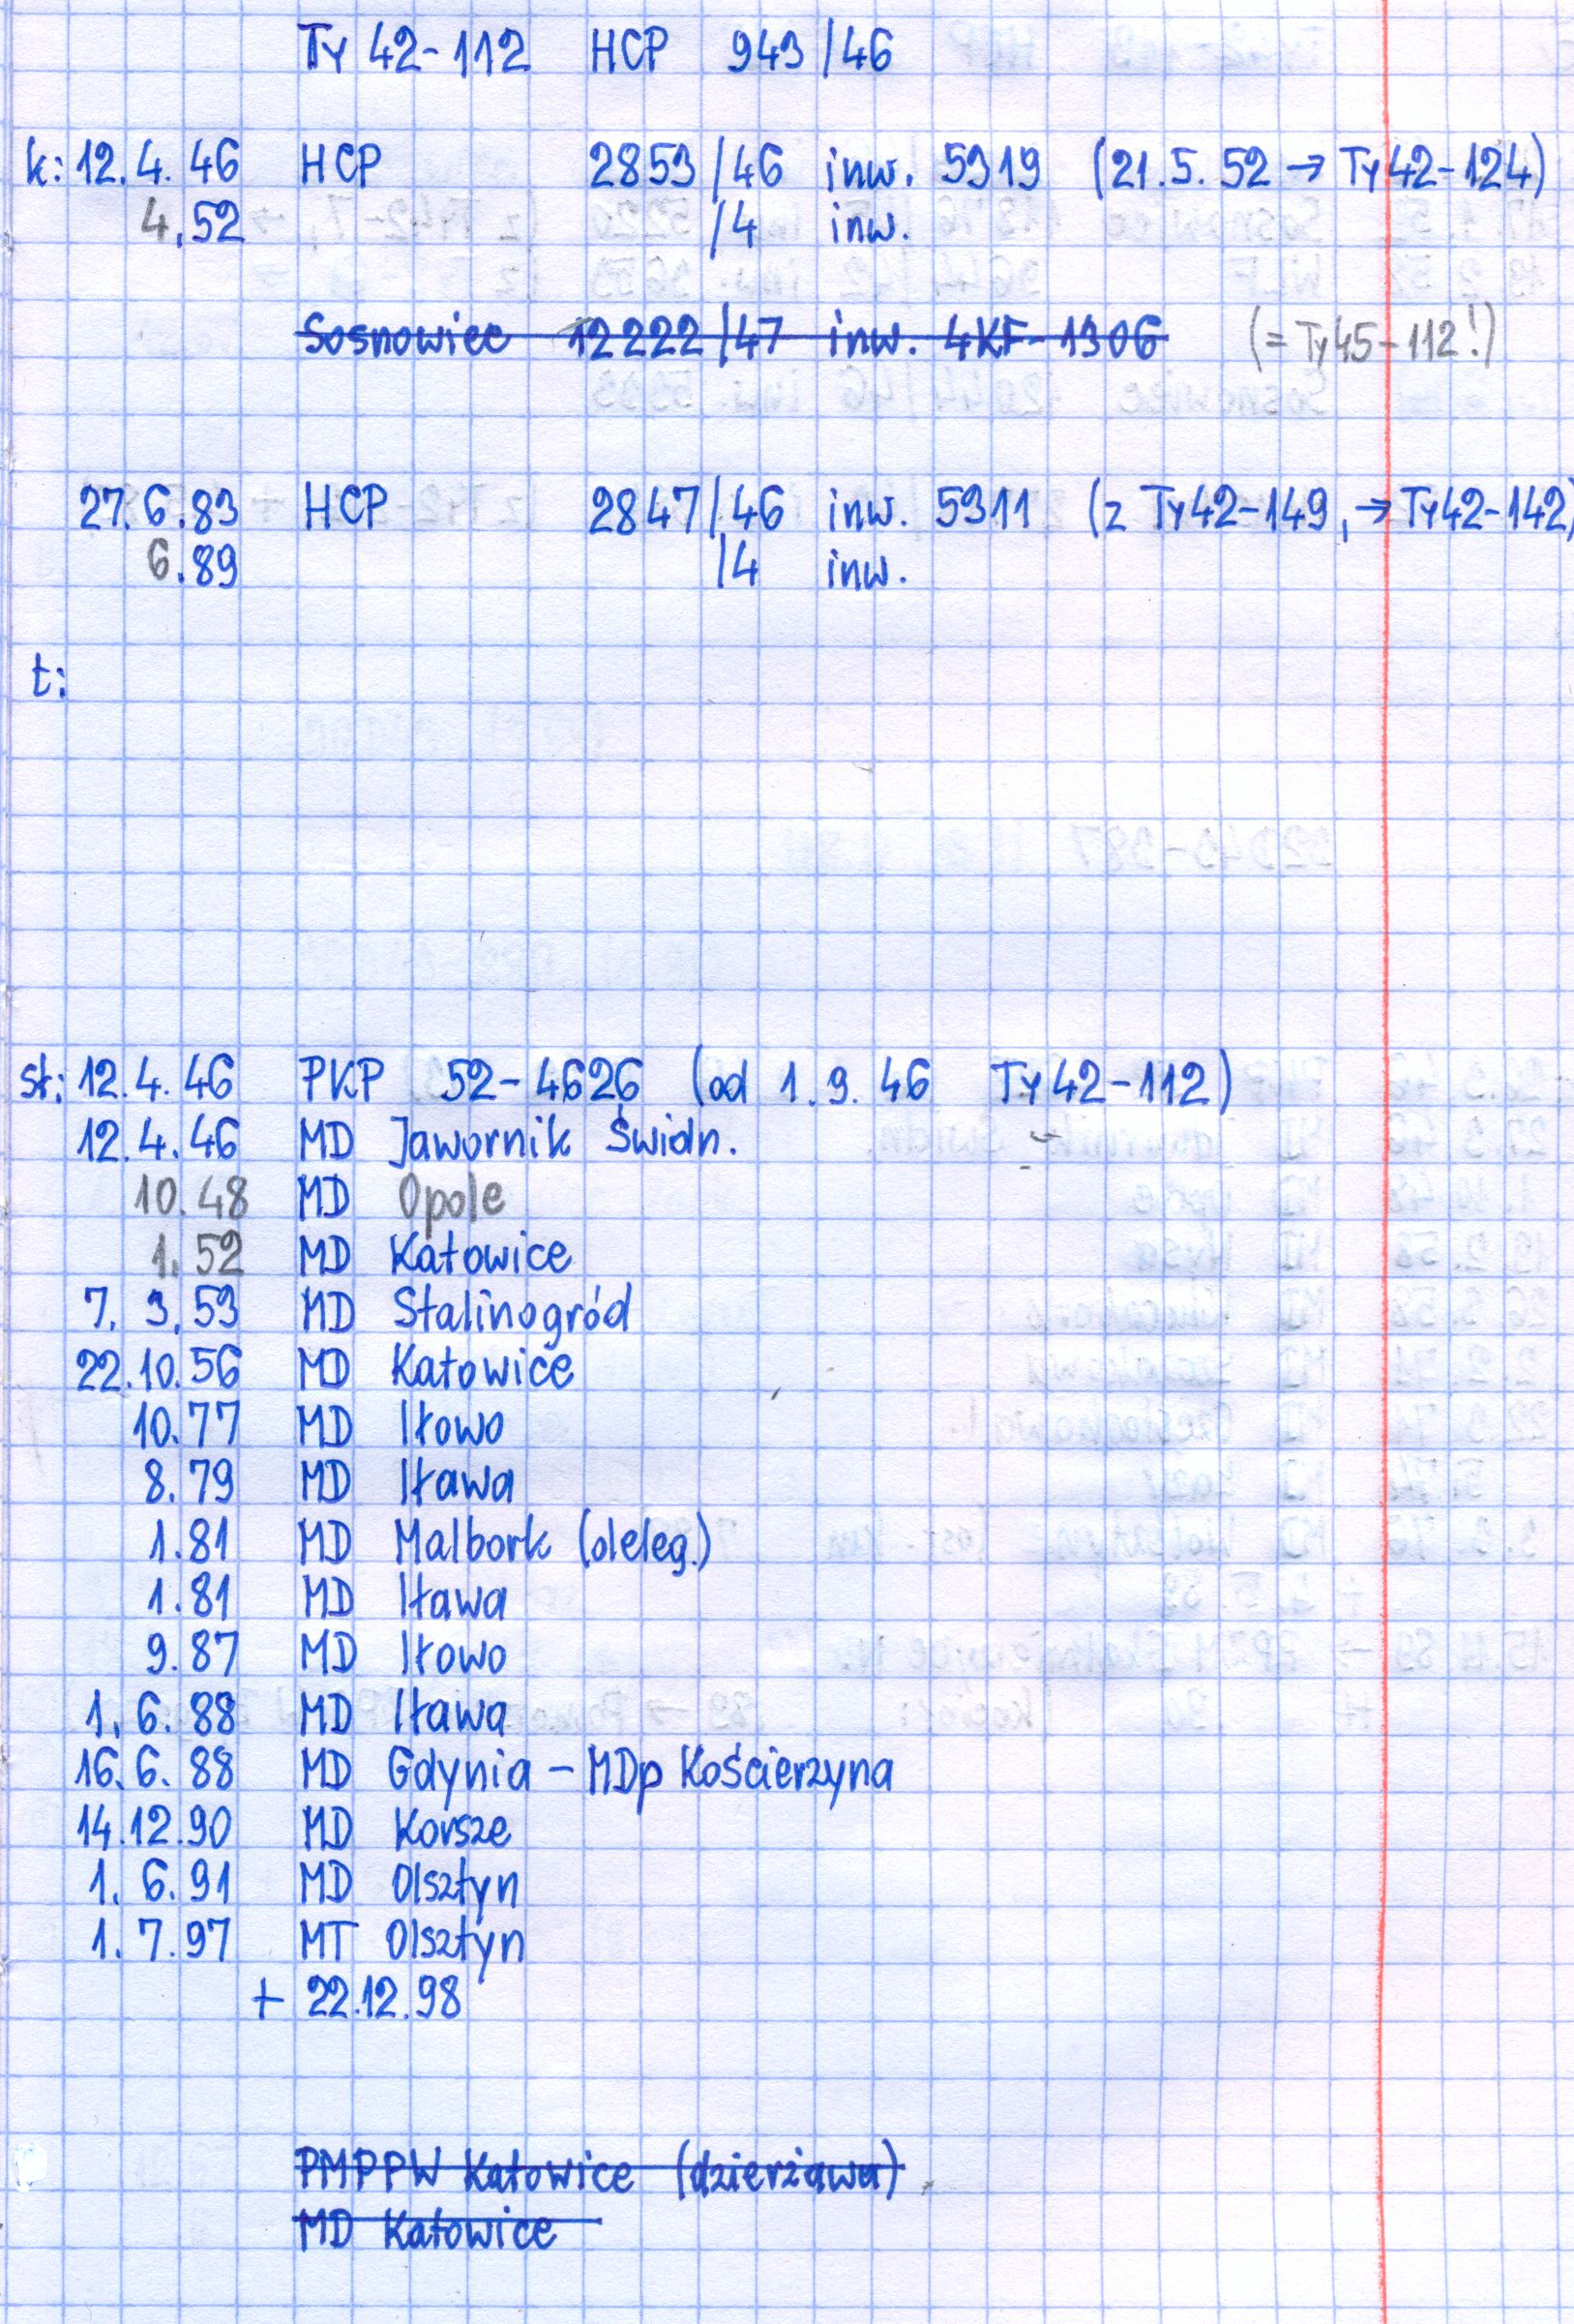 Ty 42-112 HCP 943/46
k: 12.4.46 HCP 2853/46 inw. 5319 (21.5.52 → Ty42-124)
4.52 /4 inw.
Sosnowiec 12222/47 inw. 4KF-1306 (= Ty45-112!)
27.6.83 HCP 2847/46 inw. 5311 (z Ty42-149, → Ty42-142)
6.89 /4 inw.
t:
st: 12.4.46 PKP 52-4626 (od 1.9.46 Ty42-112)
12.4.46 MD Jawornik Świdn.
10.48 MD Opole
1.52 MD Katowice
7.3.53 MD Stalinogród
22.10.56 MD Katowice
10.77 MD Iłowo
8.79 MD Iława
1.81 MD Malbork (deleg.)
1.81 MD Iława
9.87 MD Iłowo
1.6.88 MD Iława
16.6.88 MD Gdynia - MDp Kościerzyna
14.12.90 MD Korsze
1.6.91 MD Olsztyn
1.7.97 MT Olsztyn
+ 22.12.98
PMPPW Katowice (dzierżawa)
MD Katowice